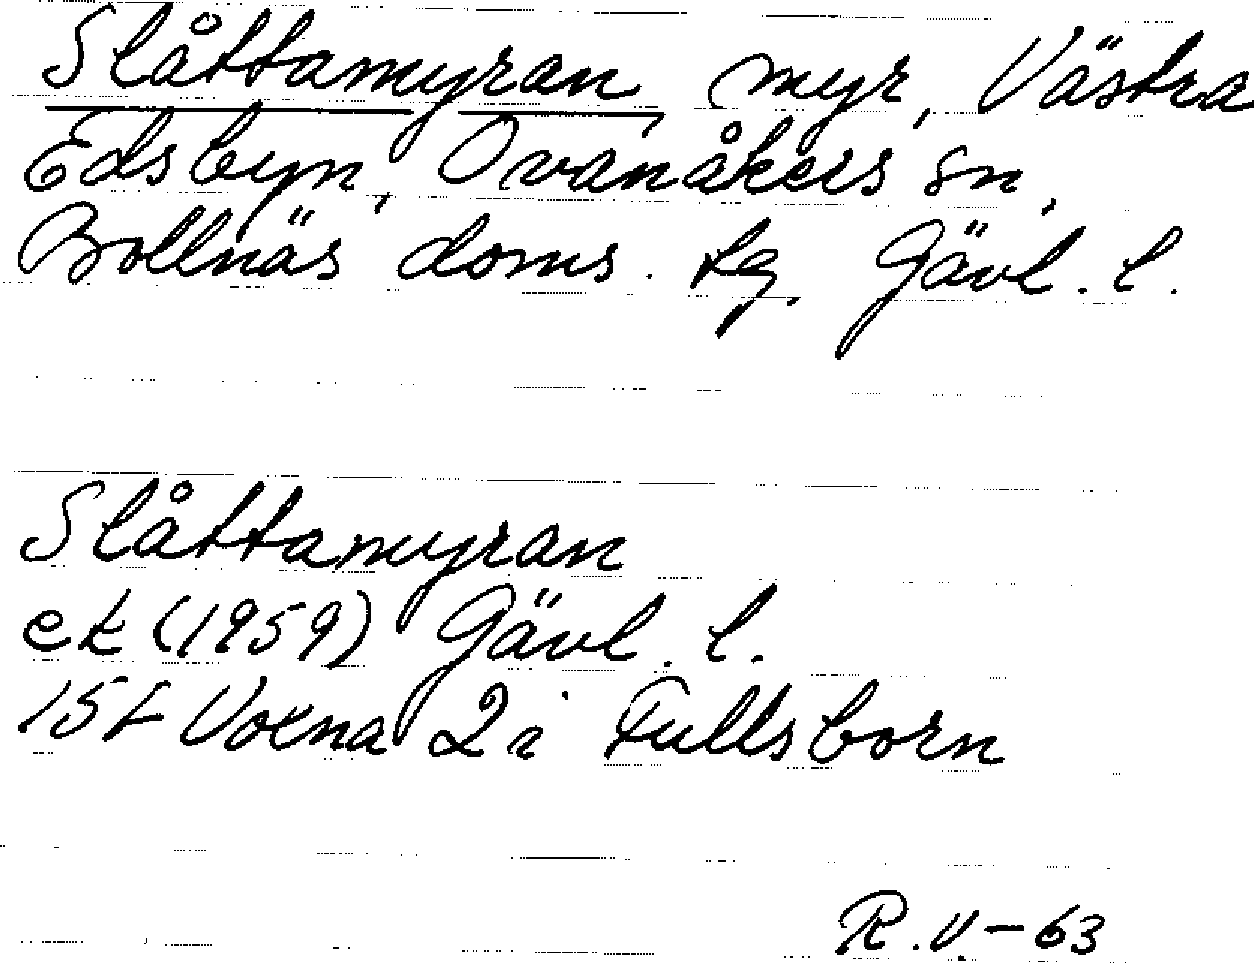 Slåttamyran, myr, Västra
Edsbyn, Ovanåkers sn,
Bollnäs doms. tg. Gävl. l.
Slåttamyran
ek (1959) Gävl. l.
15f Voxna 2i Fullsborn
R.V.-63